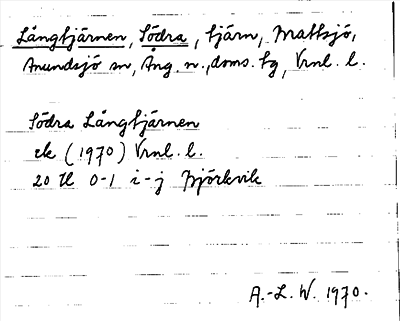 Långtjärnen, Södra, tjärn, Mattsjö,
Anundsjö sn, Ång. n., doms. tg, Vrnl. l.
Södra Långtjärnen
ek (1970) Vrnl. l.
20 H 0-1 i-j Björkvik
A.-L. W. 1970.